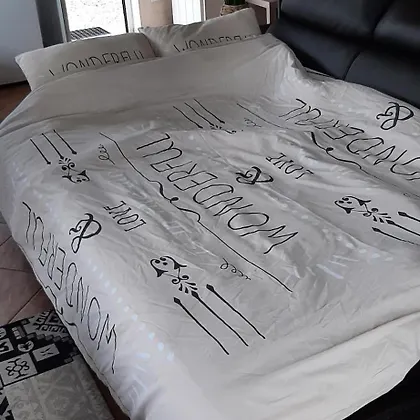 WONDERFUL
WONDERFUL
WONDERFUL
&
LOVE
WONDERFUL
&
LOVE
WONDERFUL
&
LOVE
WONDERFUL